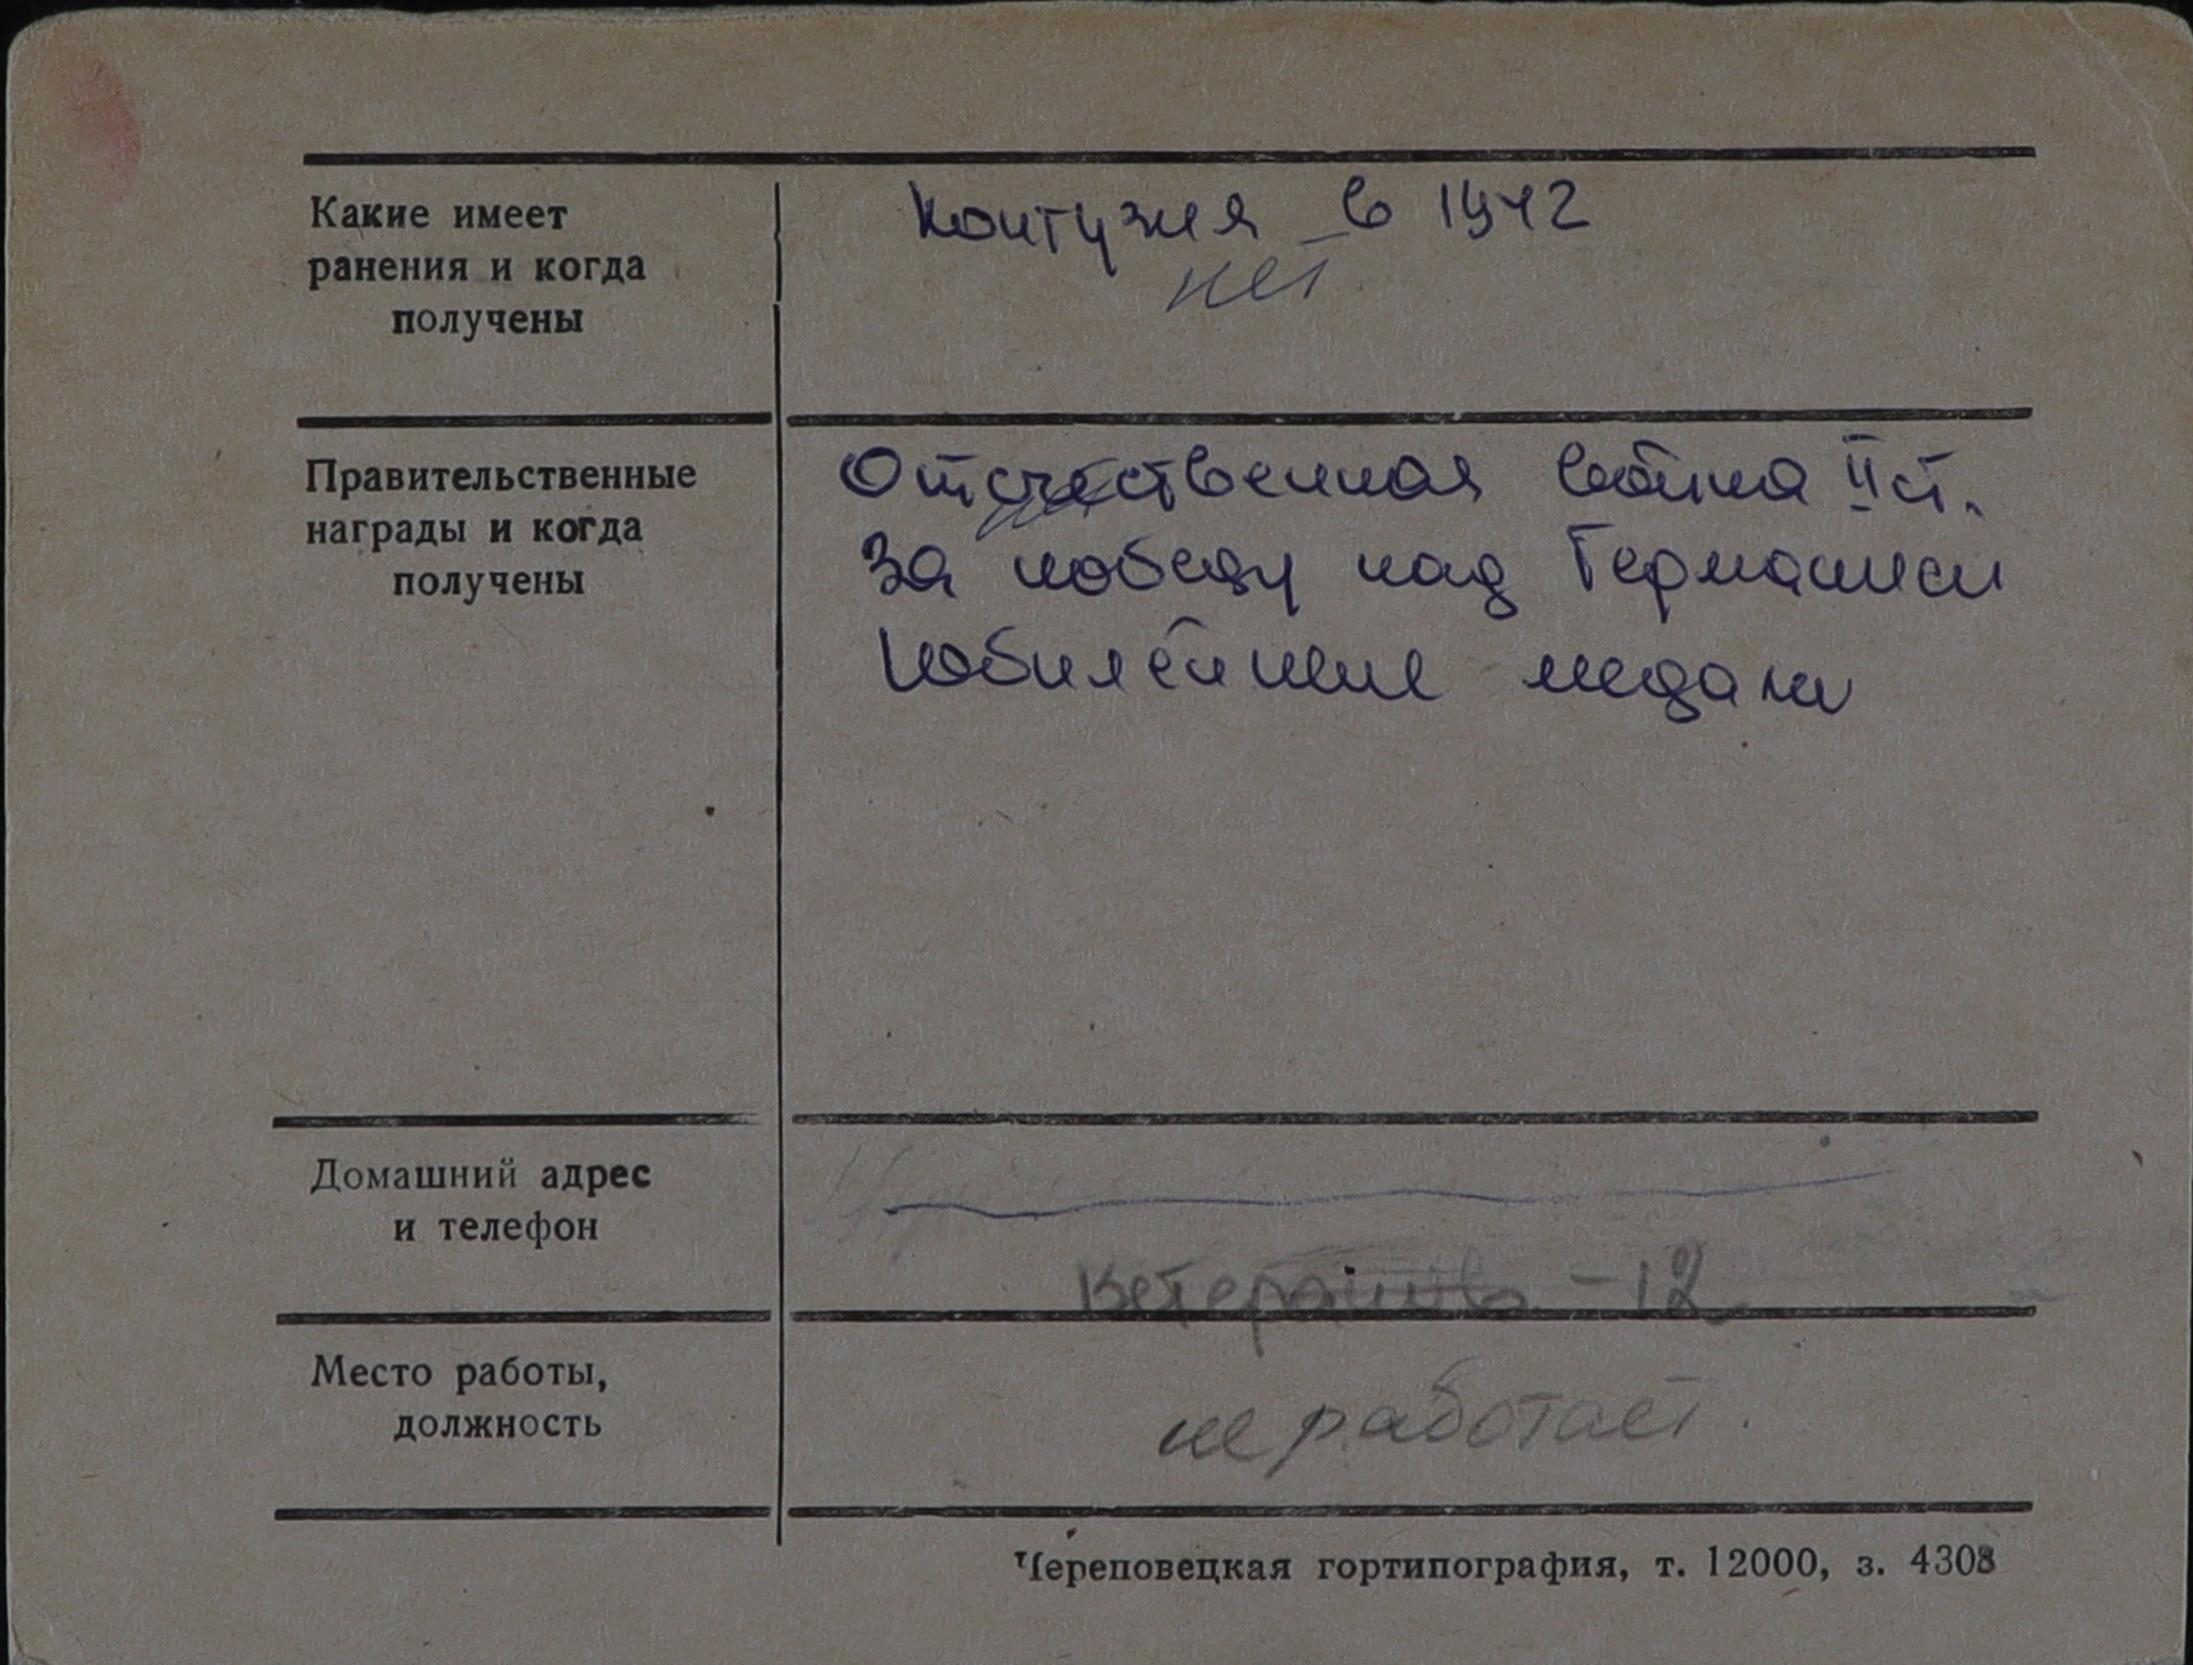 Какие имеет
ранения и когда
получены
Контузия в 1942
нет
Правительственные
награды и когда
получены
Отечественная война II ст.
За победу над Германией
Юбилейные медали
Домашний адрес
и телефон
- 12
Место работы,
должность
не работает.
Череповецкая гортипография, т. 12000, з. 4308